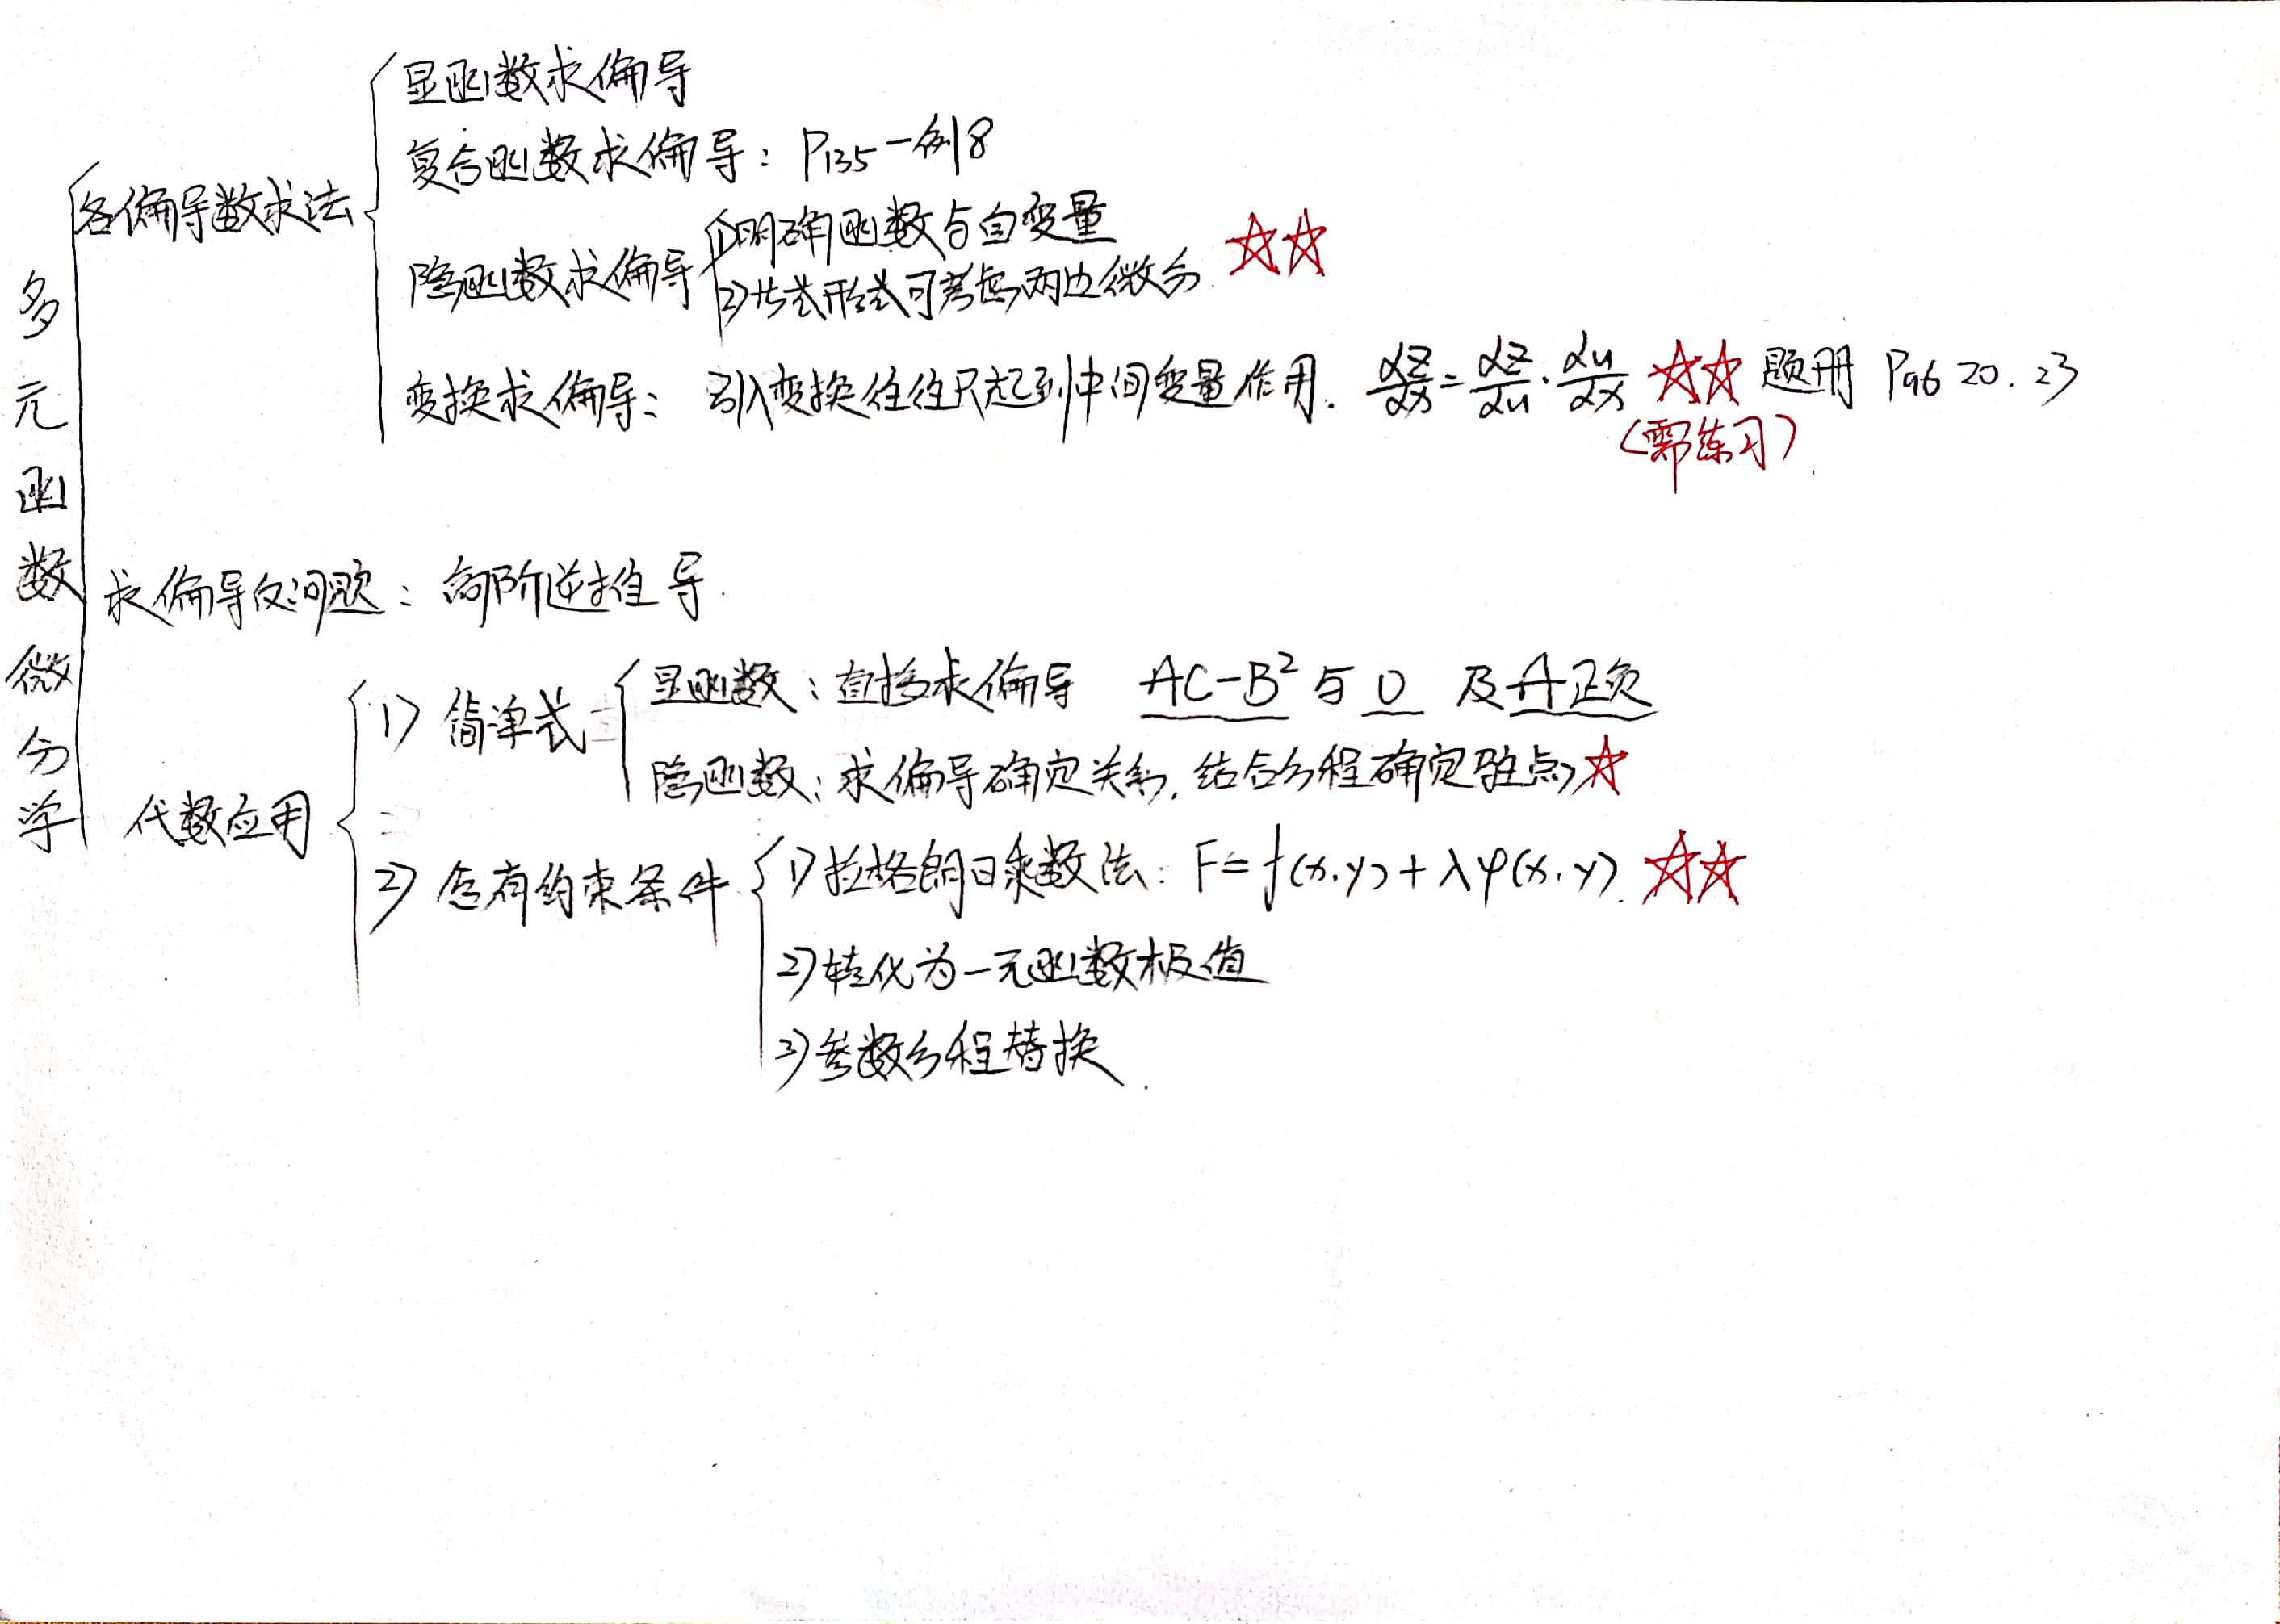 多元函数微分学
各偏导数求法
显函数求偏导
复合函数求偏导: P135-例8
隐函数求偏导
1)明确函数与自变量 ☆☆
2)方式形式可考虑两边微分
变换求偏导: 引入变换往往只起到中间变量作用. dz/dx = dz/du · du/dx ☆☆ 题册 P96 20. 23
(需练习)
求偏导反问题: 高阶逆推导.
代数应用
1) 简单式
显函数: 直接求偏导 AC-B² 与 0 及 A正负
隐函数: 求偏导确定关系, 结合方程确定驻点 ☆
2) 含有约束条件
1)拉格朗日乘数法: F=f(x,y)+λφ(x,y). ☆☆
2)转化为一元函数极值
3)参数方程替换.